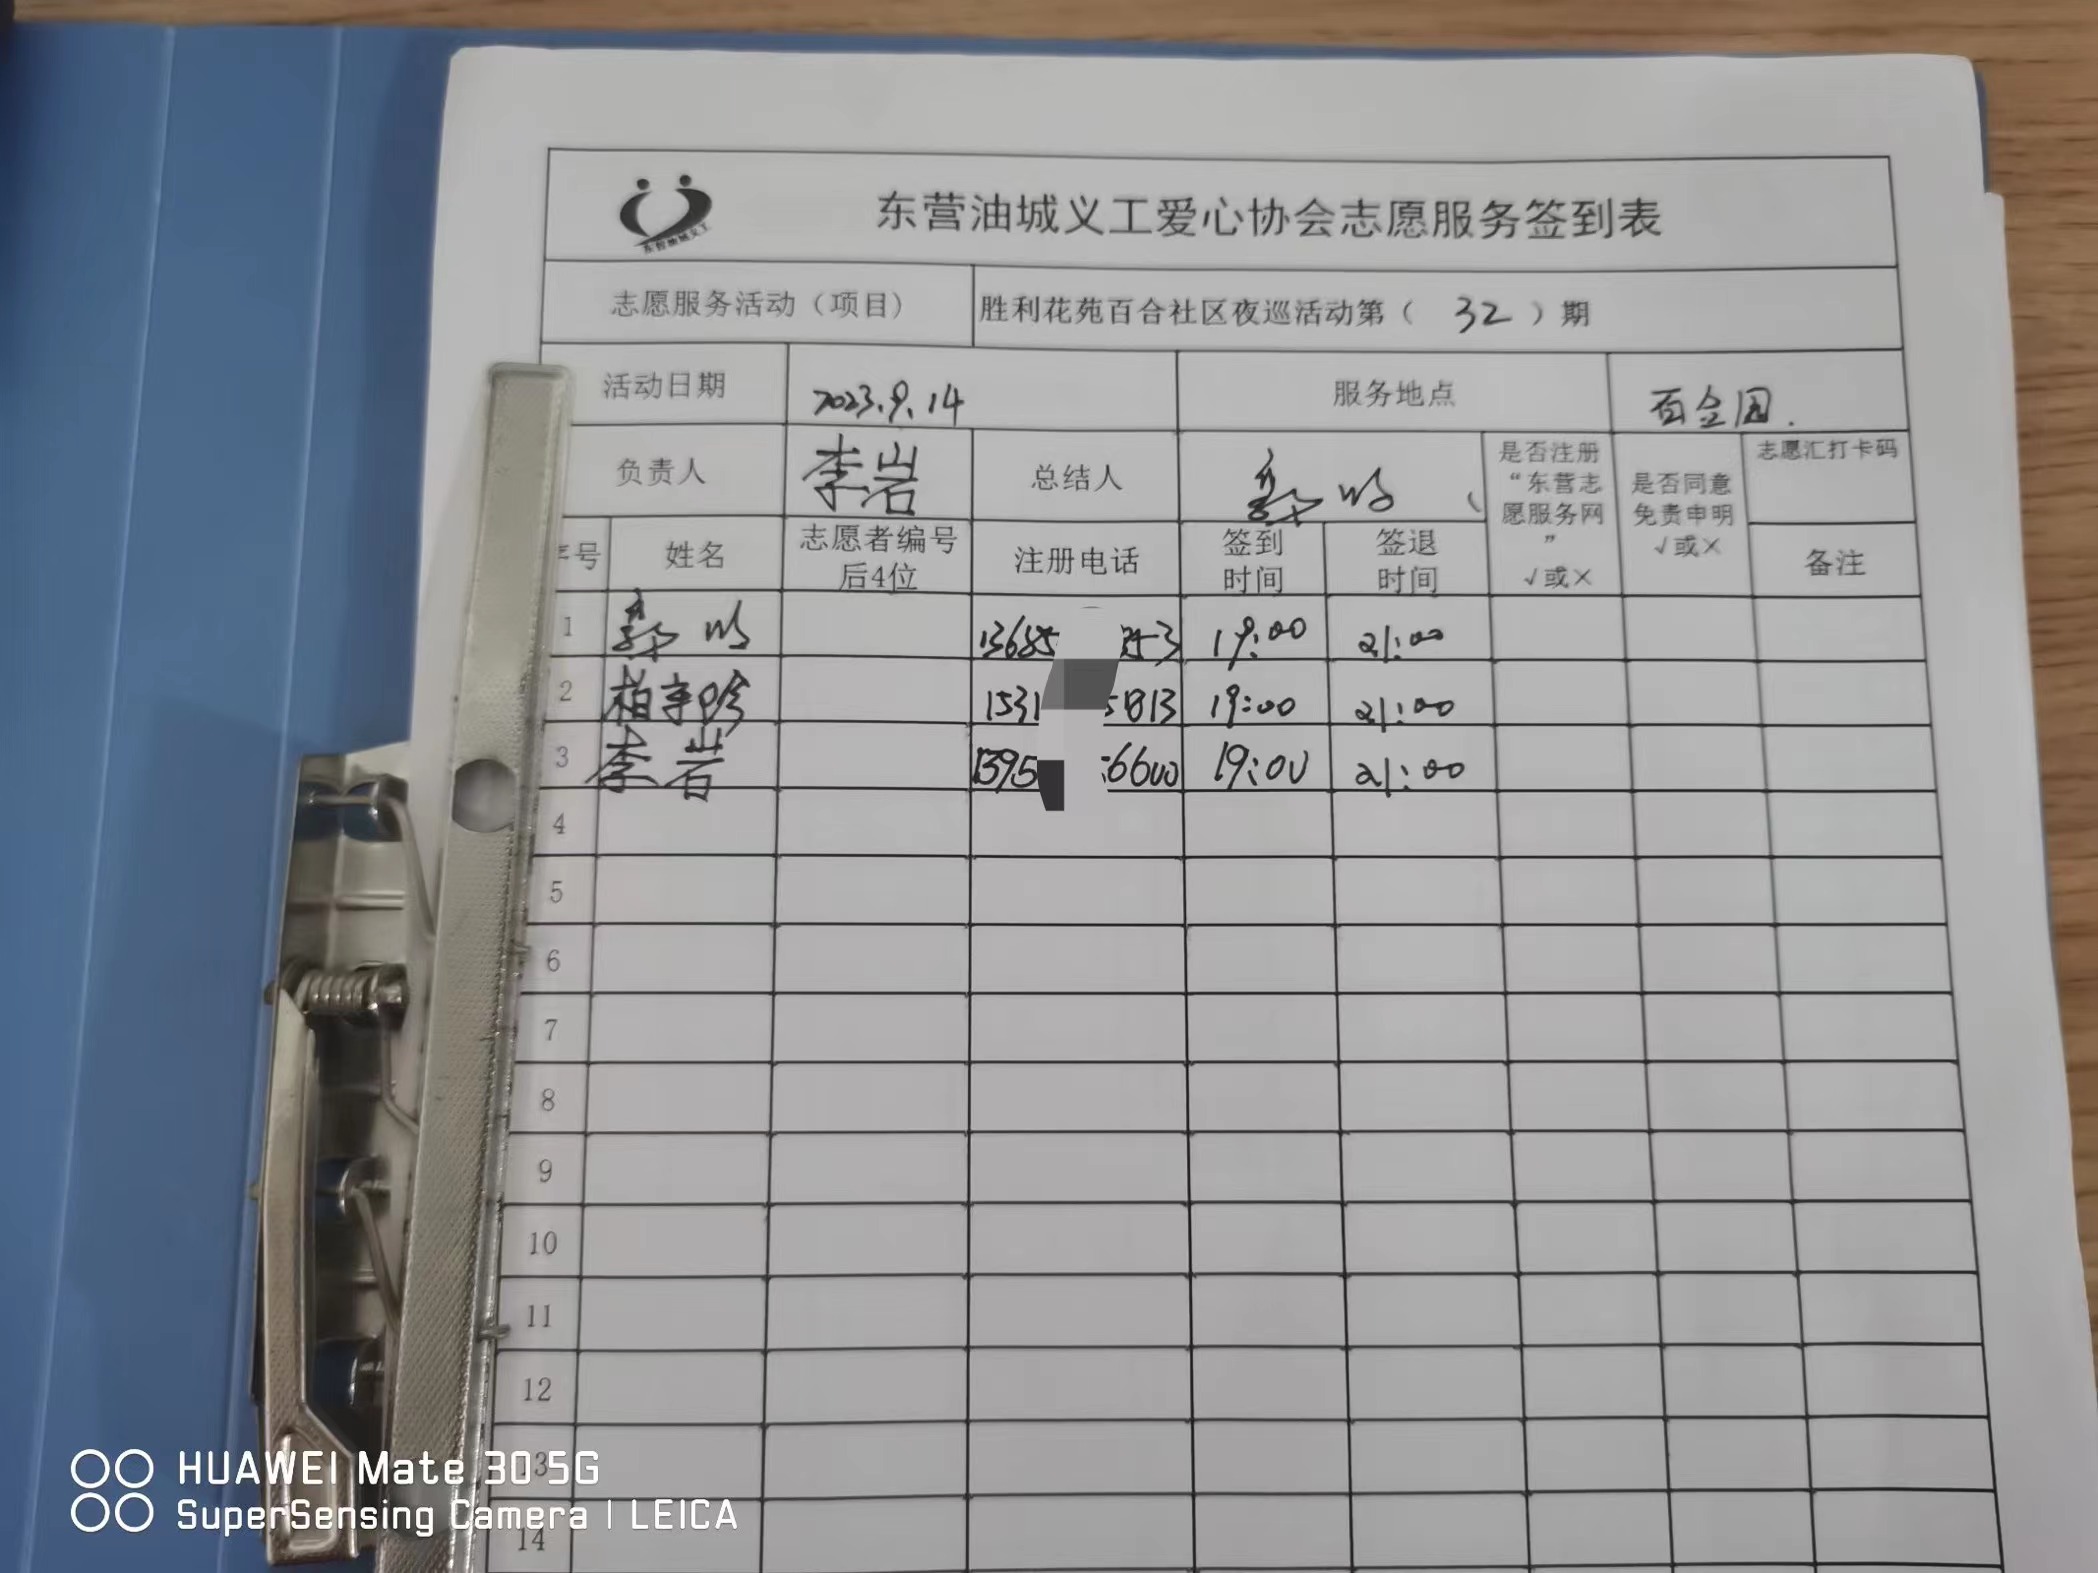 东营油城义工
东营油城义工爱心协会志愿服务签到表
志愿服务活动（项目） 胜利花苑百合社区夜巡活动第（ 32 ）期
活动日期 2023.9.14 服务地点 百合园.
负责人 李岩 总结人 是否注册“东营志愿服务网” √或× 是否同意免责申明 √或× 志愿汇打卡码
序号 姓名 志愿者编号后4位 注册电话 签到时间 签退时间 备注
1 13685 19:00 21:00
2 1531 5813 19:00 21:00
3 李岩 1395 6600 19:00 21:00
4
5
6
7
8
9
10
11
12
13
14
HUAWEI Mate 30 5G
SuperSensing Camera | LEICA